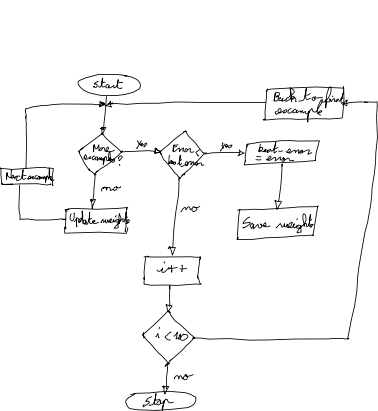 start
Back to first
example
More
examples?
yes
Error <
best error
yes
best-error
= error
Next example
no
Update weights
no
Save weights
i++
i < 10
no
Stop